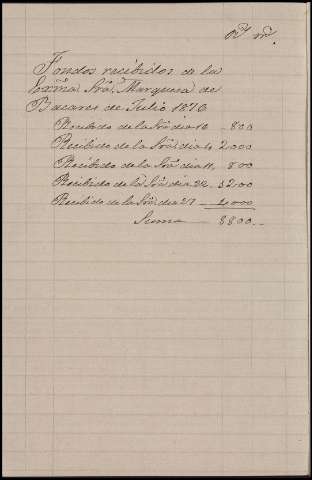 Fondos recibidos de la
Exma Sra Marquesa de
Bacares de Julio 1876
Recibido de la Sra dia 1o - 800
Recibido de la Sra dia 4 2000
Recibido de la Sra dia 11, 800
Recibido de la Sra dia 22. 1200
Recibido de la Sra dia 27 - 4000
Suma 8800